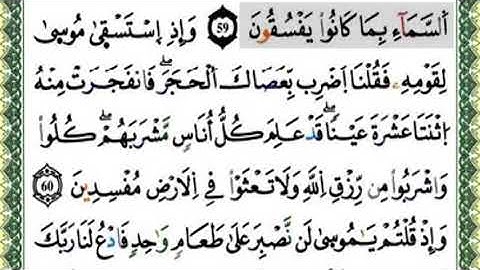 اَ۬لسَّمَآءِ بِمَا كَانُواْ يَفْسُقُونَ 59 وَإِذِ اِ۪سْتَسْق۪ىٰ مُوس۪ىٰ
لِقَوْمِهِۦ فَقُلْنَا اَ۪ضْرِب بِّعَصَاكَ اَ۬لْحَجَرَۖ فَانفَجَرَتْ مِنْهُ
اُ۪ثْنَتَا عَشْرَةَ عَيْناٗۖ قَدْ عَلِمَ كُلُّ أُنَاسٖ مَّشْرَبَهُمْۖ كُلُواْ
وَاشْرَبُواْ مِن رِّزْقِ اِ۬للَّهِ وَلَا تَعْثَوْاْ فِے اِ۬لْأَرْضِ مُفْسِدِينَ 60
وَإِذْ قُلْتُمْ يَٰمُوس۪ىٰ لَن نَّصْبِرَ عَلَىٰ طَعَامٖ وَٰحِدٖ فَادْعُ لَنَا رَبَّكَ